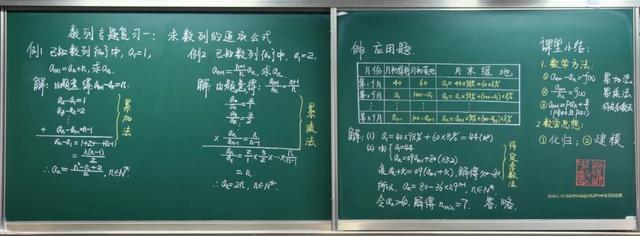 数列专题复习一：求数列的通项公式
例1 已知数列{aₙ}中, a₁=1,
aₙ₊₁=aₙ+n, 求aₙ.
解：由题意得 aₙ₊₁-aₙ=n.
a₂-a₁=1
a₃-a₂=2
+ aₙ-aₙ₋₁=n-1
aₙ-a₁=1+2+…+(n-1)
=n(n-1)/2
∴aₙ=(n²-n+2)/2, n∈N*.
累加法
例2 已知数列{aₙ}中, a₁=2,
aₙ₊₁=(n+1)/n aₙ, 求aₙ.
解：由题意得: aₙ₊₁/aₙ=(n+1)/n
a₂/a₁=2/1
a₃/a₂=3/2
× aₙ/aₙ₋₁=n/(n-1)
aₙ/a₁=2/1×3/2×…×n/(n-1)
=n
∴aₙ=2n, n∈N*.
累乘法
例3 应用题
月份 月初 月末绿地
第1个月 40 60 a₁=40×98%+60×8%
第2个月 a₁ 100-a₁
第n+1个月 aₙ 100-aₙ
解：(1) a₁=40×98%+60×8%=44(m²)
(2) 由 a₁=44
所以, aₙ=80-36×0.9ⁿ⁻¹, n∈N*.
令aₙ>60, 解得nₘᵢₙ=7. 答：略.
待定系数法
课堂小结：
1. 数学方法：
① aₙ₊₁-aₙ=f(n) 累加法
② aₙ₊₁/aₙ=f(n) 累乘法
③ aₙ₊₁=paₙ+q 待定系数法
2. 数学思想：
① 化归；② 建模